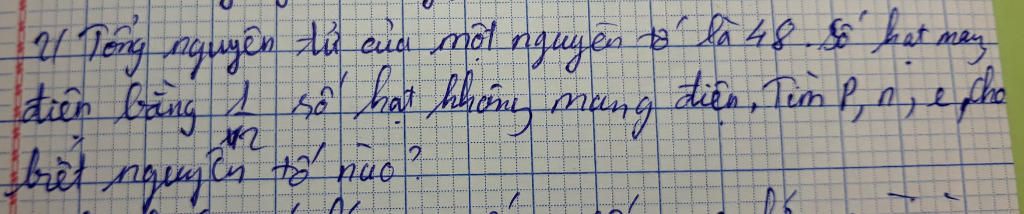 2/ Tổng nguyên tử của một nguyên tố là 48. Số hạt mang
điện bằng 1/2 số hạt không mang điện, Tìm P, n, e, cho
biết nguyên tố nào?